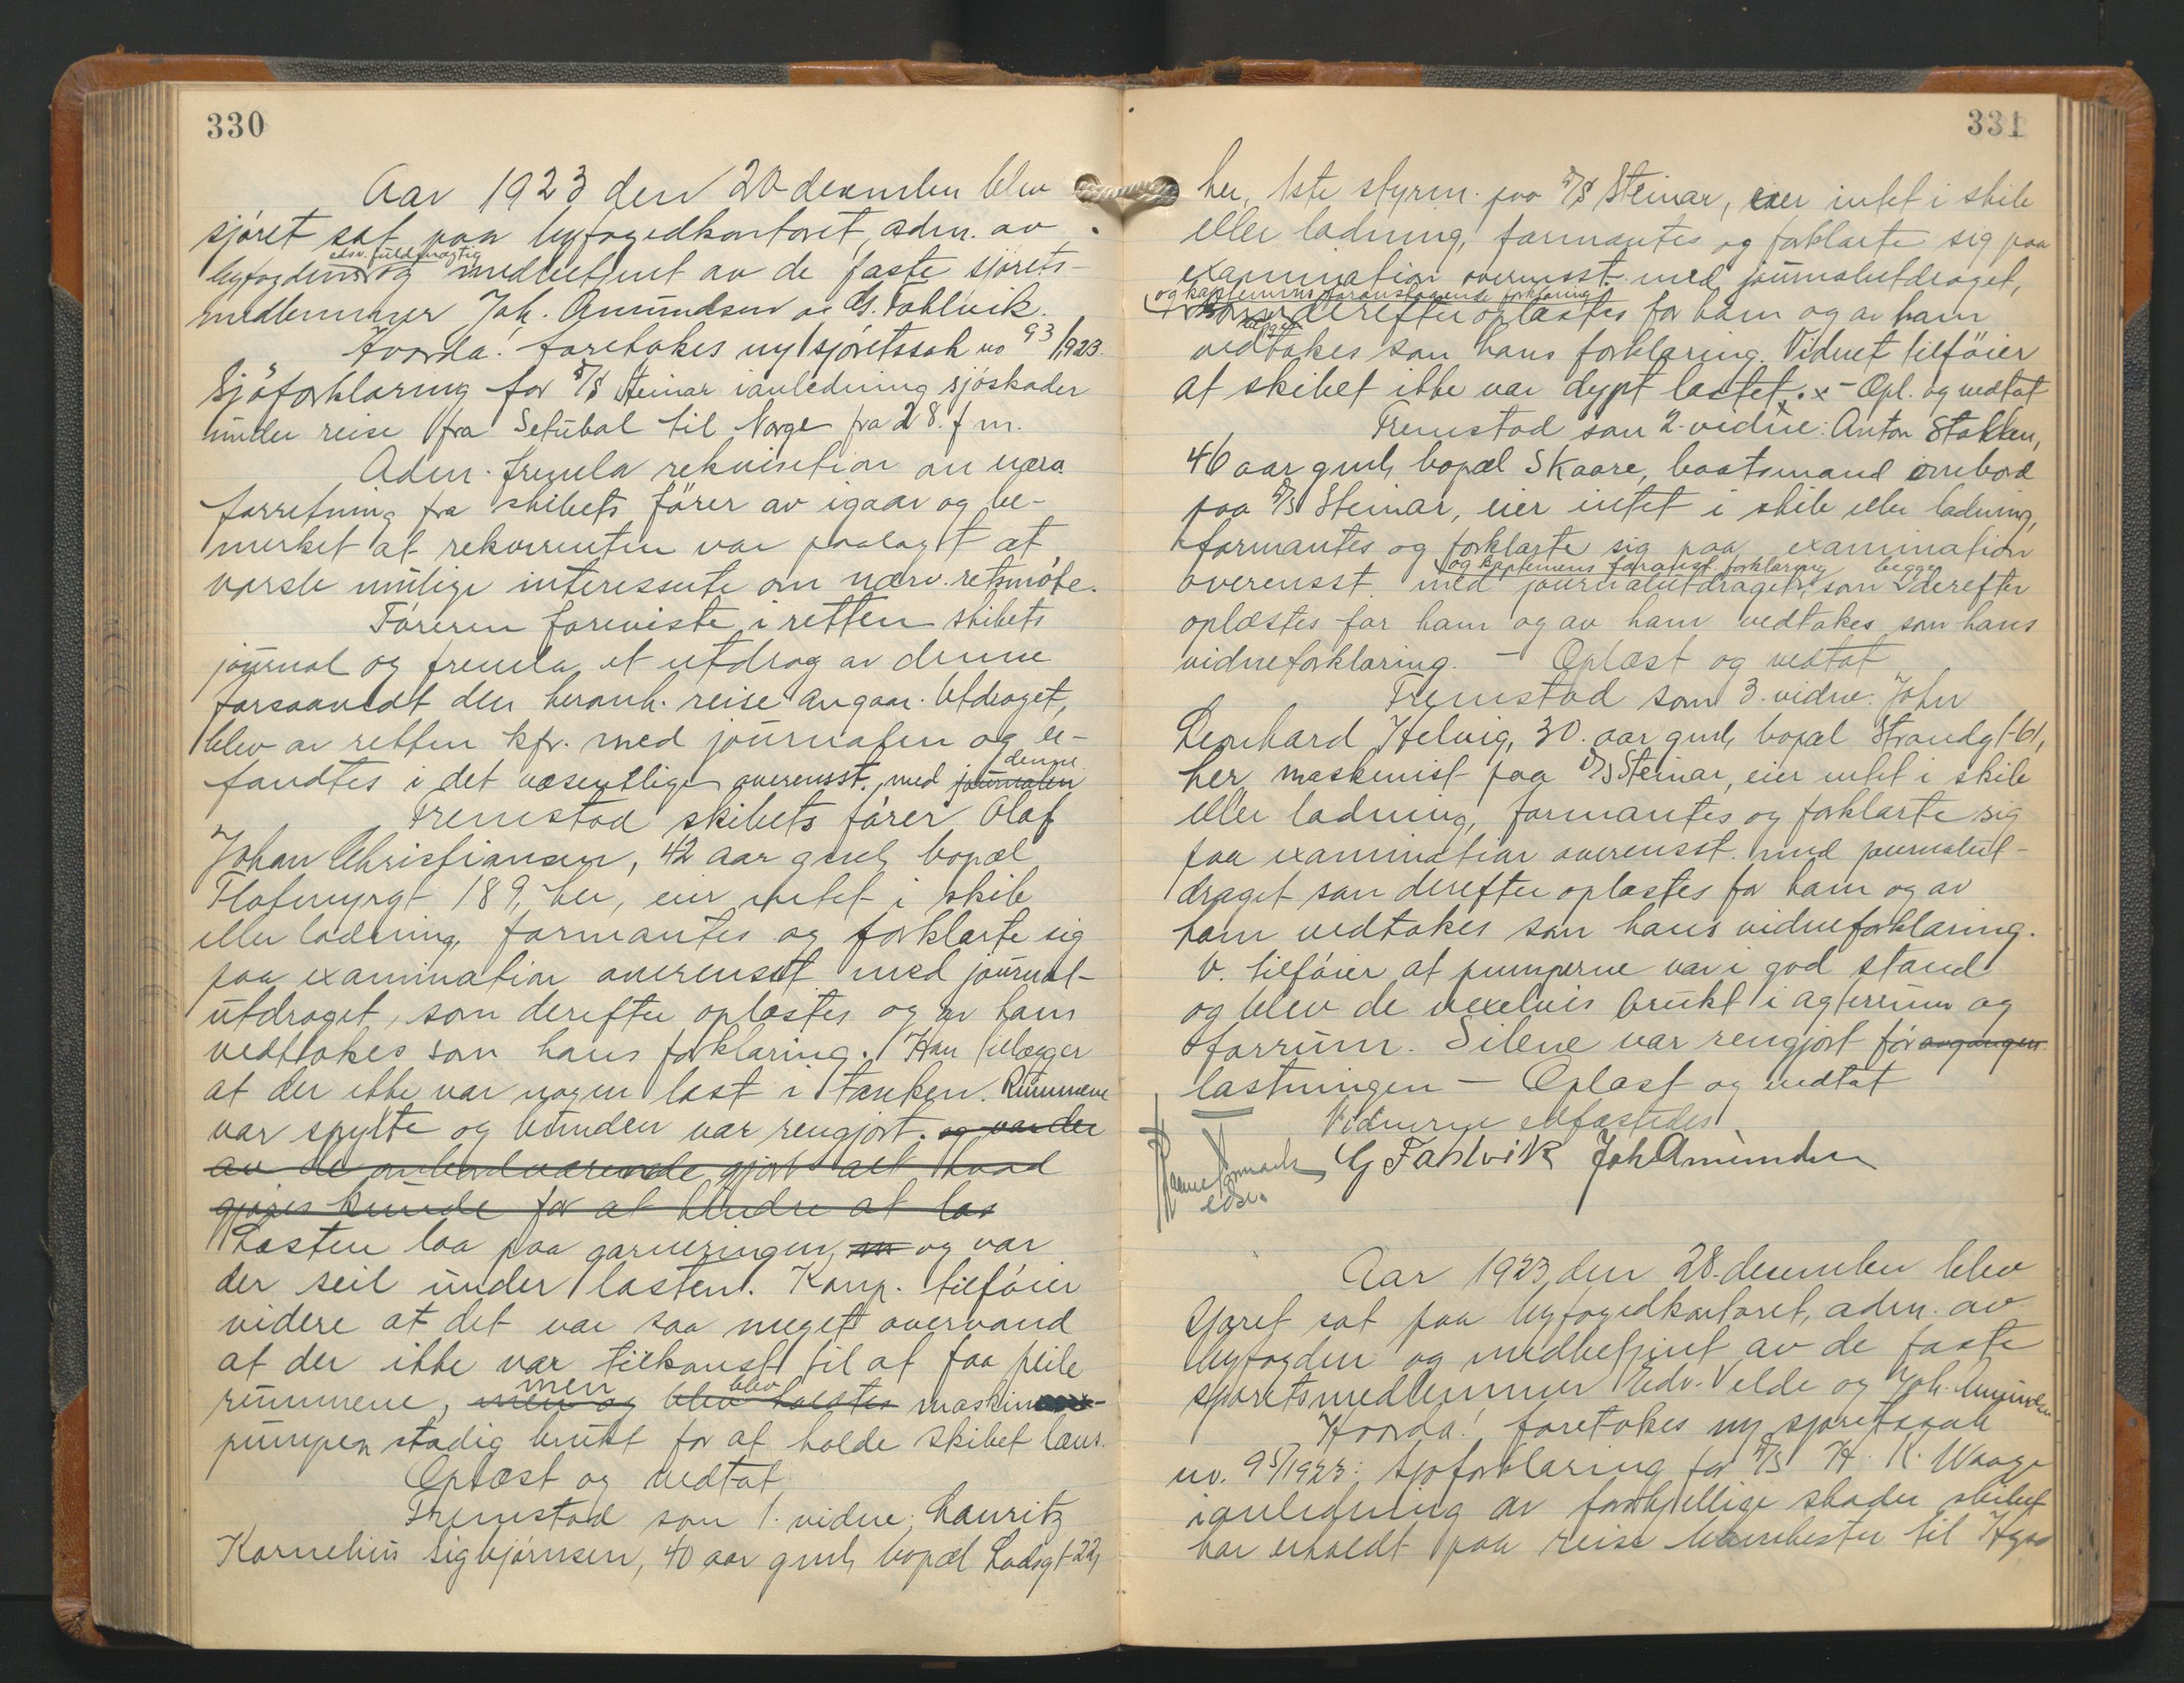 330
Aar 1923 den 20 desember blev
sjöret sat paa byfogedkontoret, adm. av
edsv. fuldmægtig
byfogdens og medbetjent av de faste sjörets-
medlemmer Joh. Amundsen og G. Fahlvik.
Hvorda! foretokes ny sjöretssak no 93/1923
Sjöforklaring for S/S Steinar i anledning sjöskader
under reise fra Setubal til Norge fra 28. f m.
Adm. fremla rekvisition om nærv.
forretning fra skibets förer av igaar og be-
merket at rekvirenten var paalagt at
varsle mulige interessente om nærv. retsmöte.
Föreren foreviste i retten skibets
journal og fremla et utdrag av denne
forsaavidt den heromh. reise angaar. Utdraget,
blev av retten kfr. med journalen og be-
denne
fandtes i det væsentlige overensst. med journalen
Fremstod skibets förer Olaf
Johan Christiansen, 42 aar gml, bopæl
Flotmyrgt 189, her, eier intet i skib
eller ladning, formantes og forklarte sig
paa examination overensst med journal-
utdraget, som derefter oplæstes og av ham
vedtokes som hans forklaring. Han tilægger
at der ikke var nogen last i tanken. Rummene
var spylte og bunden var rengjort. og var der
av de ombordværende gjort alt hvad
gjöres kunde for at hindre at las
Lasten laa paa garneringen, og var
der seil under lasten. Komp. tilföier
videre at det var saa meget overvand
at der ikke var tilkomst til at faa peile
men blev
rummene, men og blev holdtes maskin-
pumpen stadig brukt for at holde skibet læns.
Oplæst og vedtat.
Fremstod som 1. vidne: Lauritz
Kornelius Sigbjørnsen, 40 aar gml, bopæl Lodsgt 22,
331
her, 1ste styrm. paa S/S Steinar, eier intet i skib
eller ladning, formantes og forklarte sig paa
examination overensst. med journalutdraget,
og kapteinens foranstaaende forklaring
som derefter oplæstes for ham og av ham
vedtokes som hans forklaring. Vidnet tilföier
at skibet ikke var dypt lastet. x - Opl. og vedtat
Fremstod som 2. vidne: Anton Stakken,
46 aar gml, bopæl Skaare, baatsmand ombord
paa S/S Steinar, eier intet i skib eller ladning,
formantes og forklarte sig paa examination
og kapteinens foranst. forklaring begge
overensst. med journalutdraget, som derefter
oplæstes for ham og av ham vedtokes som hans
vidneforklaring. - Oplæst og vedtat
Fremstod som 3. vidne: John
Leonhard Helvig, 30. aar gml, bopæl Strandgt 61,
her, maskinist paa S/S Steinar, eier intet i skib
eller ladning, formantes og forklarte sig
paa examination overensst. med journalut-
draget som derefter oplæstes for ham og av
ham vedtokes som hans vidneforklaring.
V. tilföier at pumperne var i god stand
og blev de vexelvis brukt i agterrum og
forrum. Silene var rengjort för avgangen
lastningen - Oplæst og vedtat
Vidnerne edfæstedes
G Fahlvik Joh Amundsen
edsv.
Aar 1923, den 28. desember blev
Sjöret sat paa byfogedkontoret, adm. av
byfogden og medbetjent av de faste
sjöretsmedlemmer Edv. Velde og Joh. Amundsen
Hvorda! foretokes ny sjöretssak
nr. 95/1923: Sjöforklaring for S/S H. K. Waage
i anledning av forskjellige skader skibet
har erholdt paa reise Manchester til Hgsd